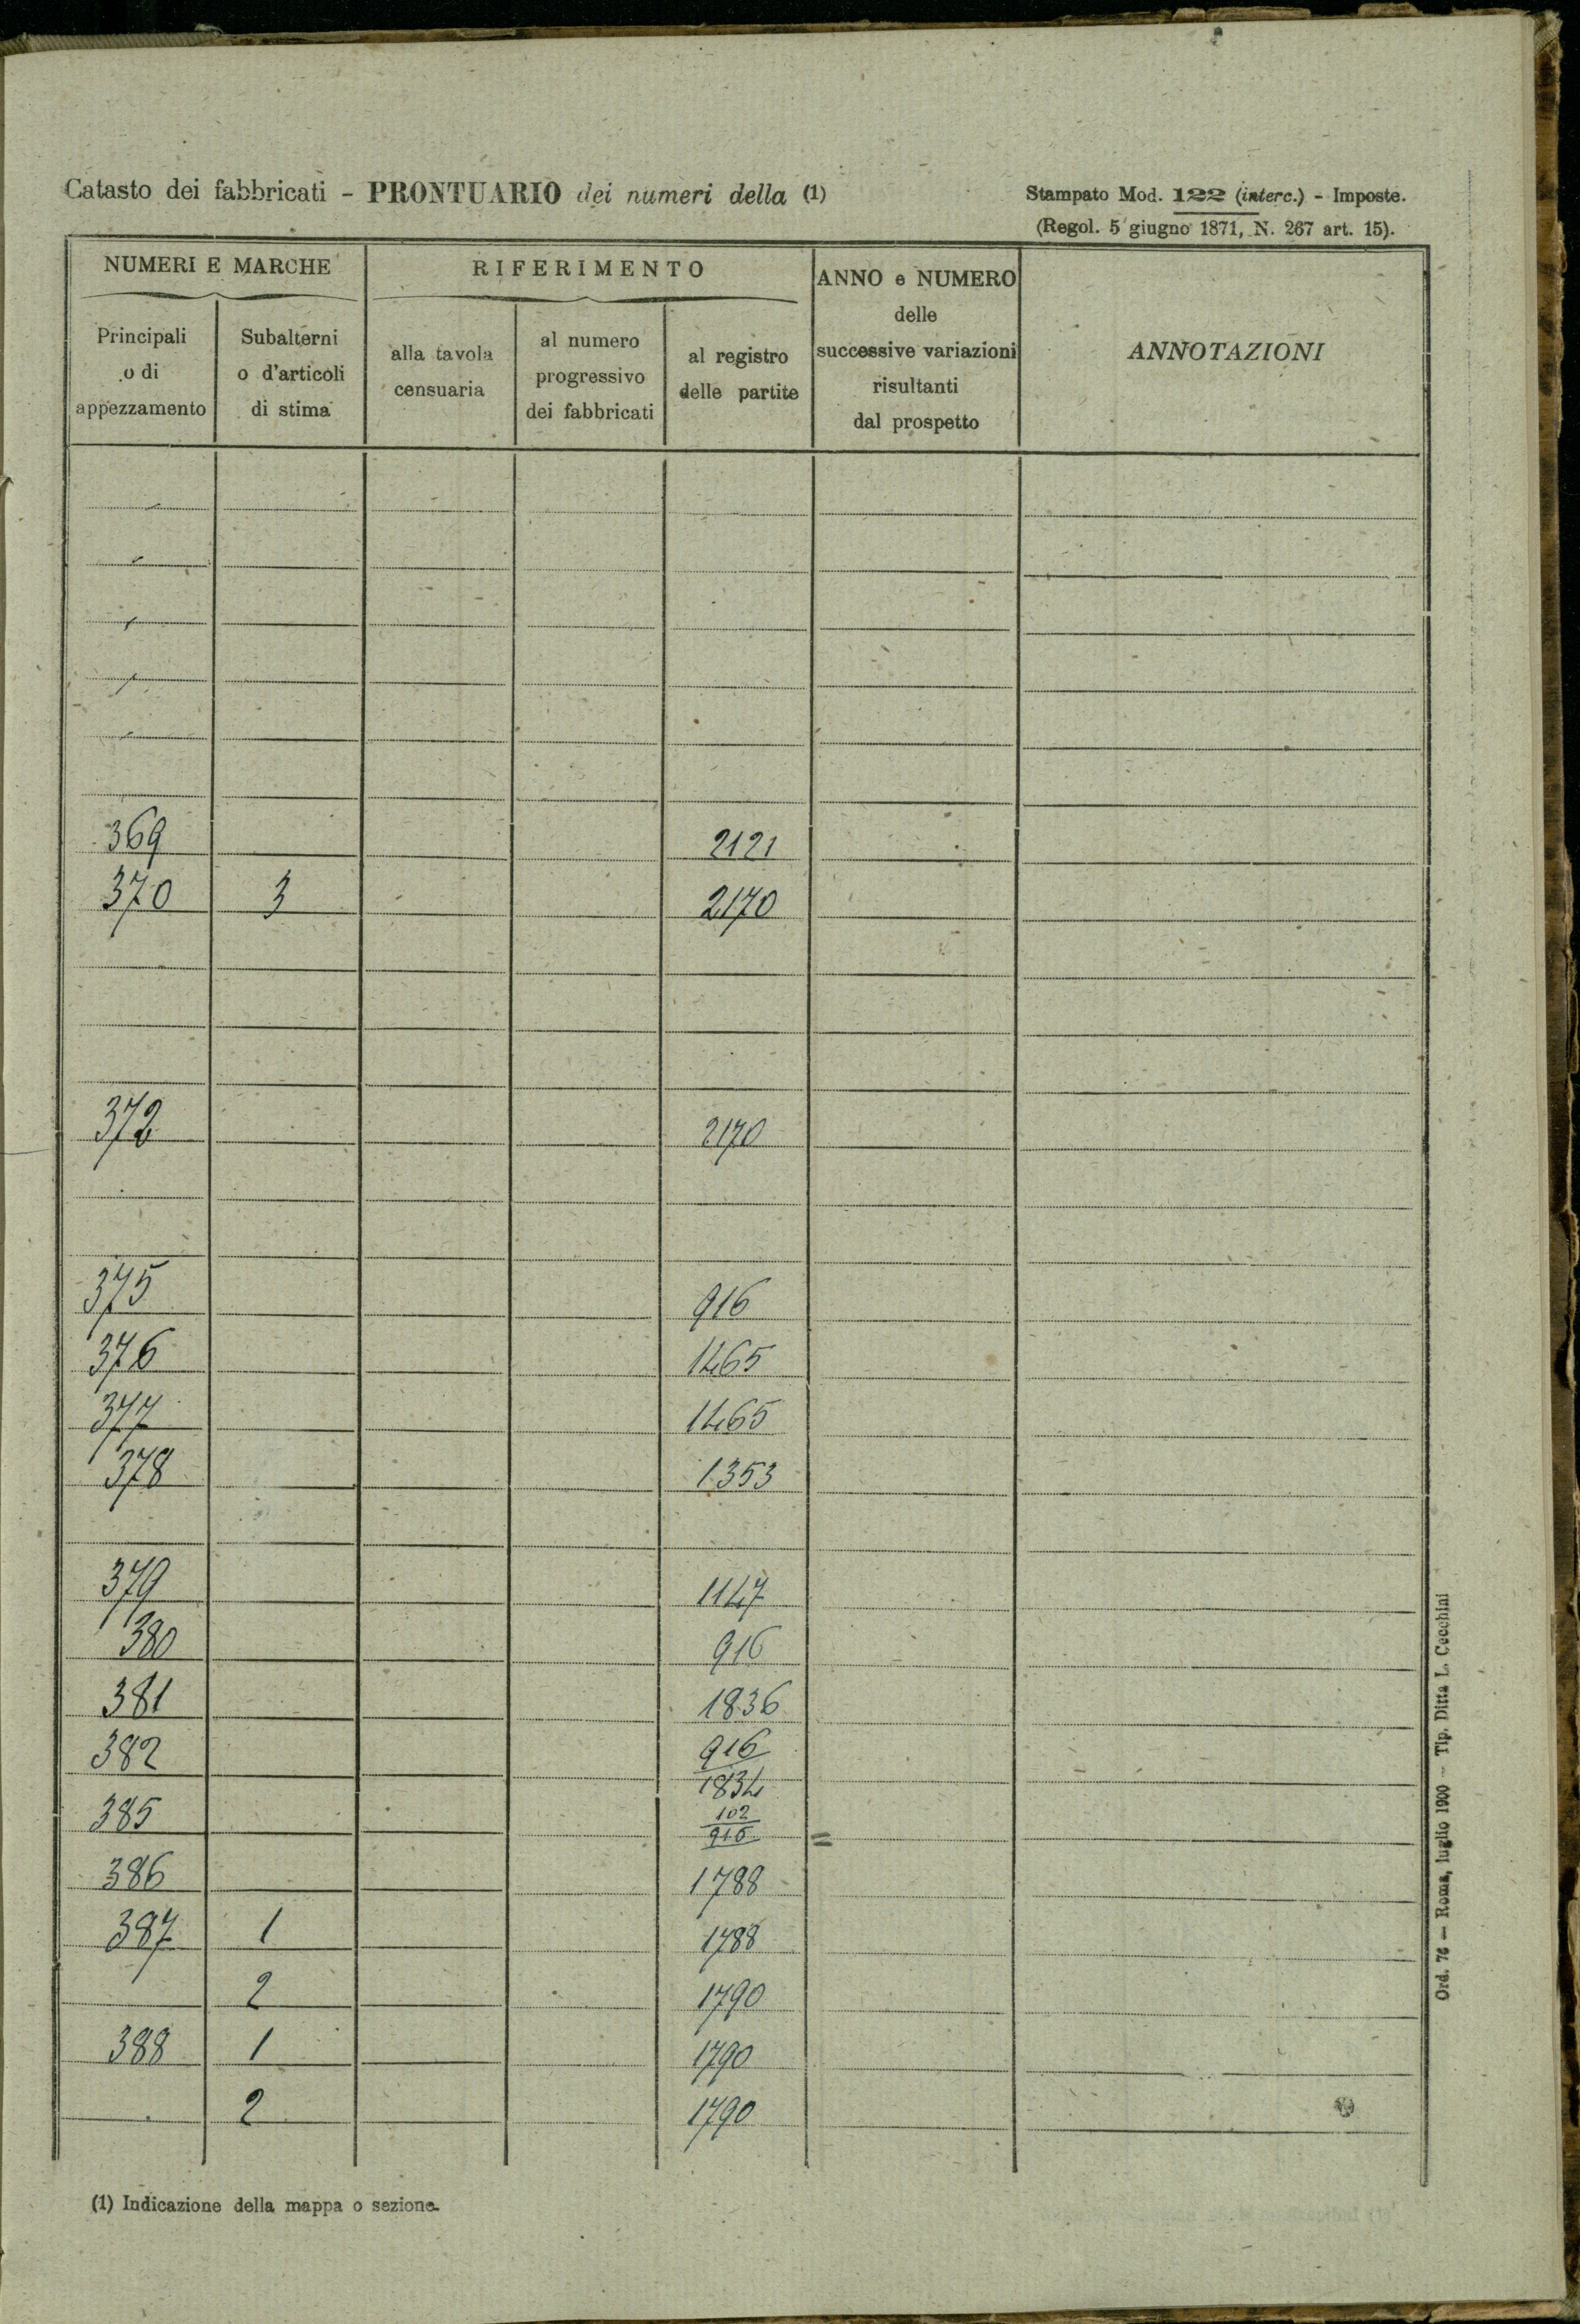 Catasto dei fabbricati - PRONTUARIO dei numeri della (1)
Stampato Mod. 122 (interc.) - Imposte.
(Regol. 5 giugno 1871, N. 267 art. 15).
NUMERI E MARCHE
RIFERIMENTO
ANNO e NUMERO
delle
successive variazioni
risultanti
dal prospetto
ANNOTAZIONI
Principali
o di
appezzamento
Subalterni
o d'articoli
di stima
alla tavola
censuaria
al numero
progressivo
dei fabbricati
al registro
delle partite
369 2121
370 3 2170
372 2170
375 916
376 1465
377 1465
378 1353
379 1147
380 916
381 1836
382 916
1834
385 102
916 =
386 1788
387 1 1788
2 1790
388 1 1790
2 1790
(1) Indicazione della mappa o sezione.
Ord. 76 — Roma, luglio 1900 — Tip. Ditta L. Cecchini